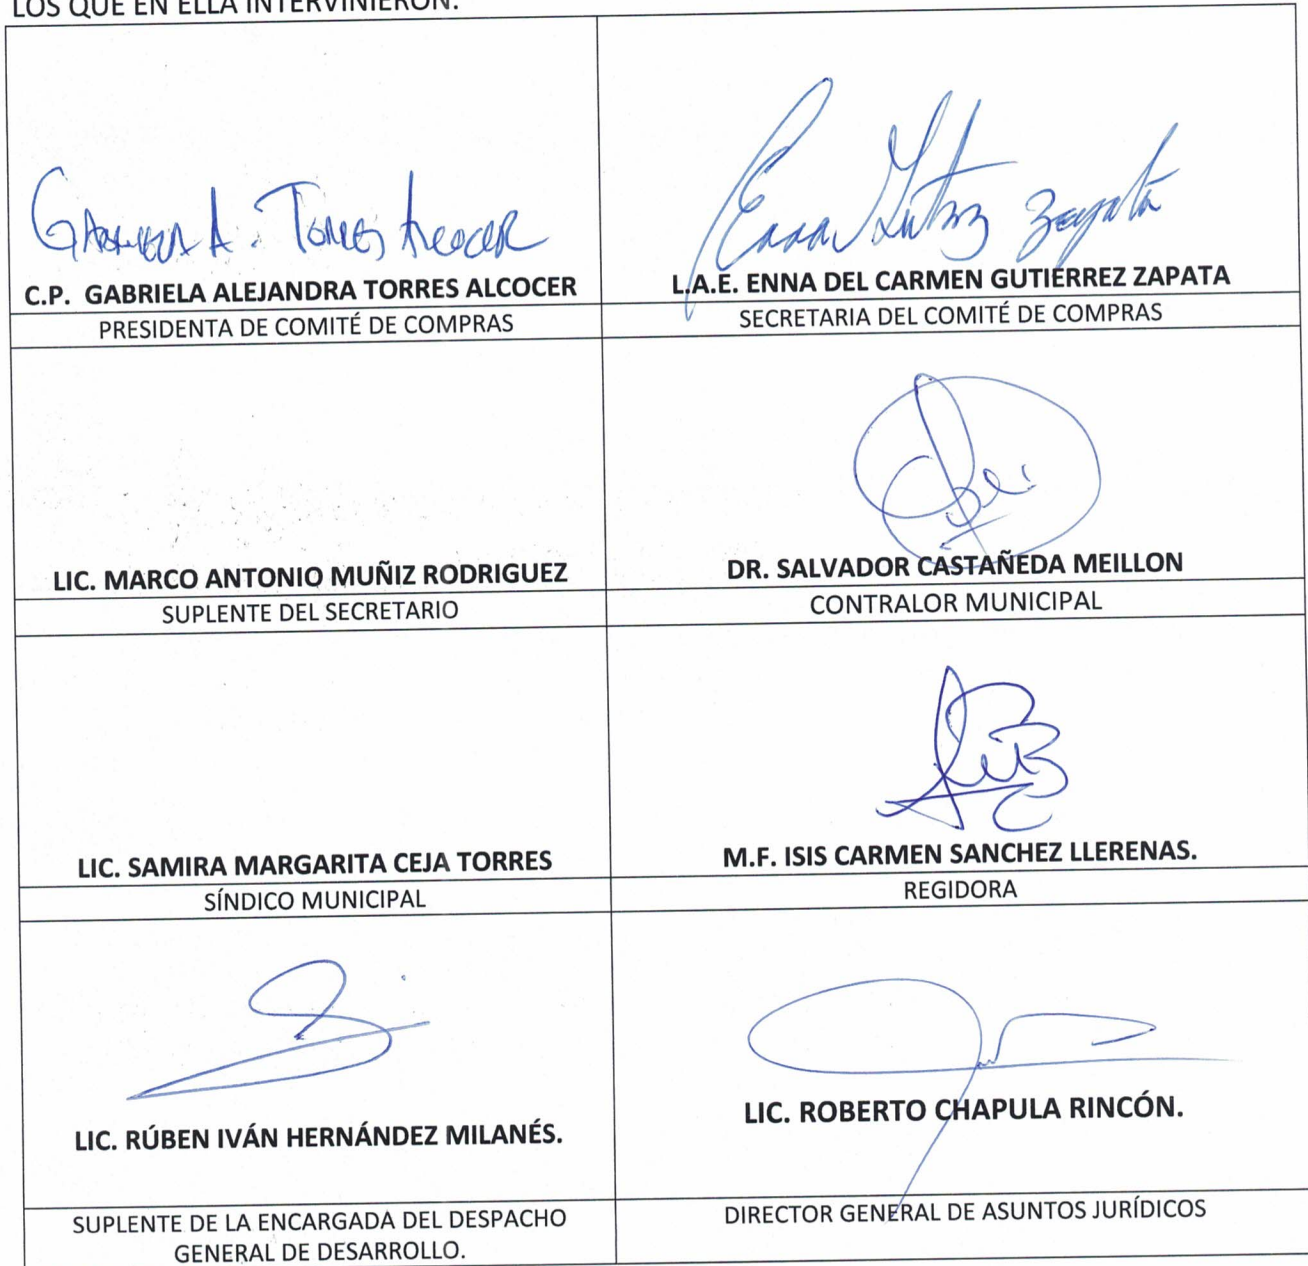 LOS QUE EN ELLA INTERVINIERON.
Gabriela A. Torres Alcocer
Enna Gutrrz Zapata
C.P. GABRIELA ALEJANDRA TORRES ALCOCER
L.A.E. ENNA DEL CARMEN GUTIÉRREZ ZAPATA
PRESIDENTA DE COMITÉ DE COMPRAS
SECRETARIA DEL COMITÉ DE COMPRAS
LIC. MARCO ANTONIO MUÑIZ RODRIGUEZ
DR. SALVADOR CASTAÑEDA MEILLON
SUPLENTE DEL SECRETARIO
CONTRALOR MUNICIPAL
LIC. SAMIRA MARGARITA CEJA TORRES
M.F. ISIS CARMEN SANCHEZ LLERENAS.
SÍNDICO MUNICIPAL
REGIDORA
LIC. RÚBEN IVÁN HERNÁNDEZ MILANÉS.
LIC. ROBERTO CHAPULA RINCÓN.
SUPLENTE DE LA ENCARGADA DEL DESPACHO
GENERAL DE DESARROLLO.
DIRECTOR GENERAL DE ASUNTOS JURÍDICOS